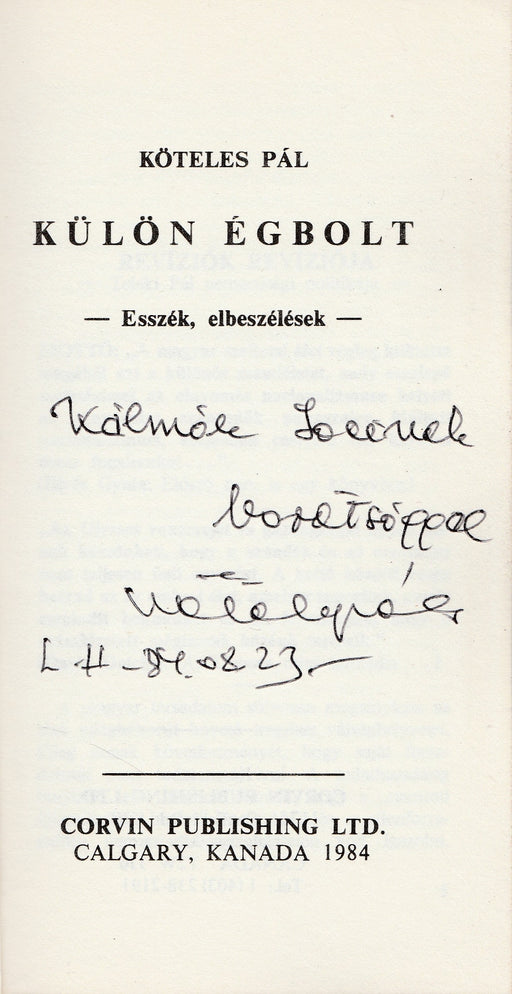 KÖTELES PÁL
KÜLÖN ÉGBOLT
— Esszék, elbeszélések —
Kálmán
barátsággal
L H - 84. 08 23. —
CORVIN PUBLISHING LTD.
CALGARY, KANADA 1984